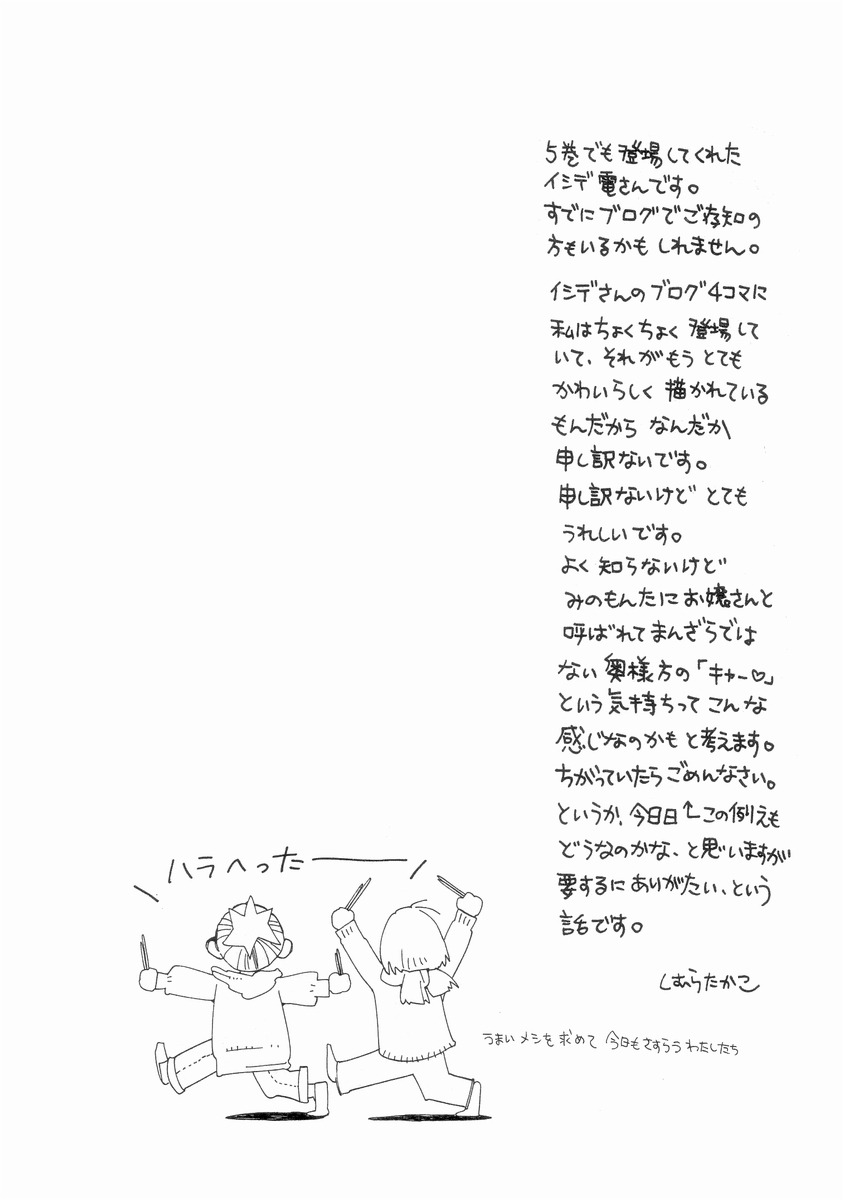 5巻でも登場してくれた
イシデ電さんです。
すでにブログでご存知の
方もいるかもしれません。
イシデさんのブログ4コマに
私はちょくちょく登場して
いて、それがもうとても
かわいらしく描かれている
もんだからなんだか
申し訳ないです。
申し訳ないけどとても
うれしいです。
よく知らないけど
みのもんたにお嬢さんと
呼ばれてまんざらでは
ない奥様方の「キャー♡」
という気持ちってこんな
感じなのかもと考えます。
ちがっていたらごめんなさい。
というか、今日日↑この例えも
どうなのかな、と思いますが
要するにありがたい、という
話です。
しむらたかこ
ハラへったーー
うまいメシを求めて今日もさすらうわたしたち